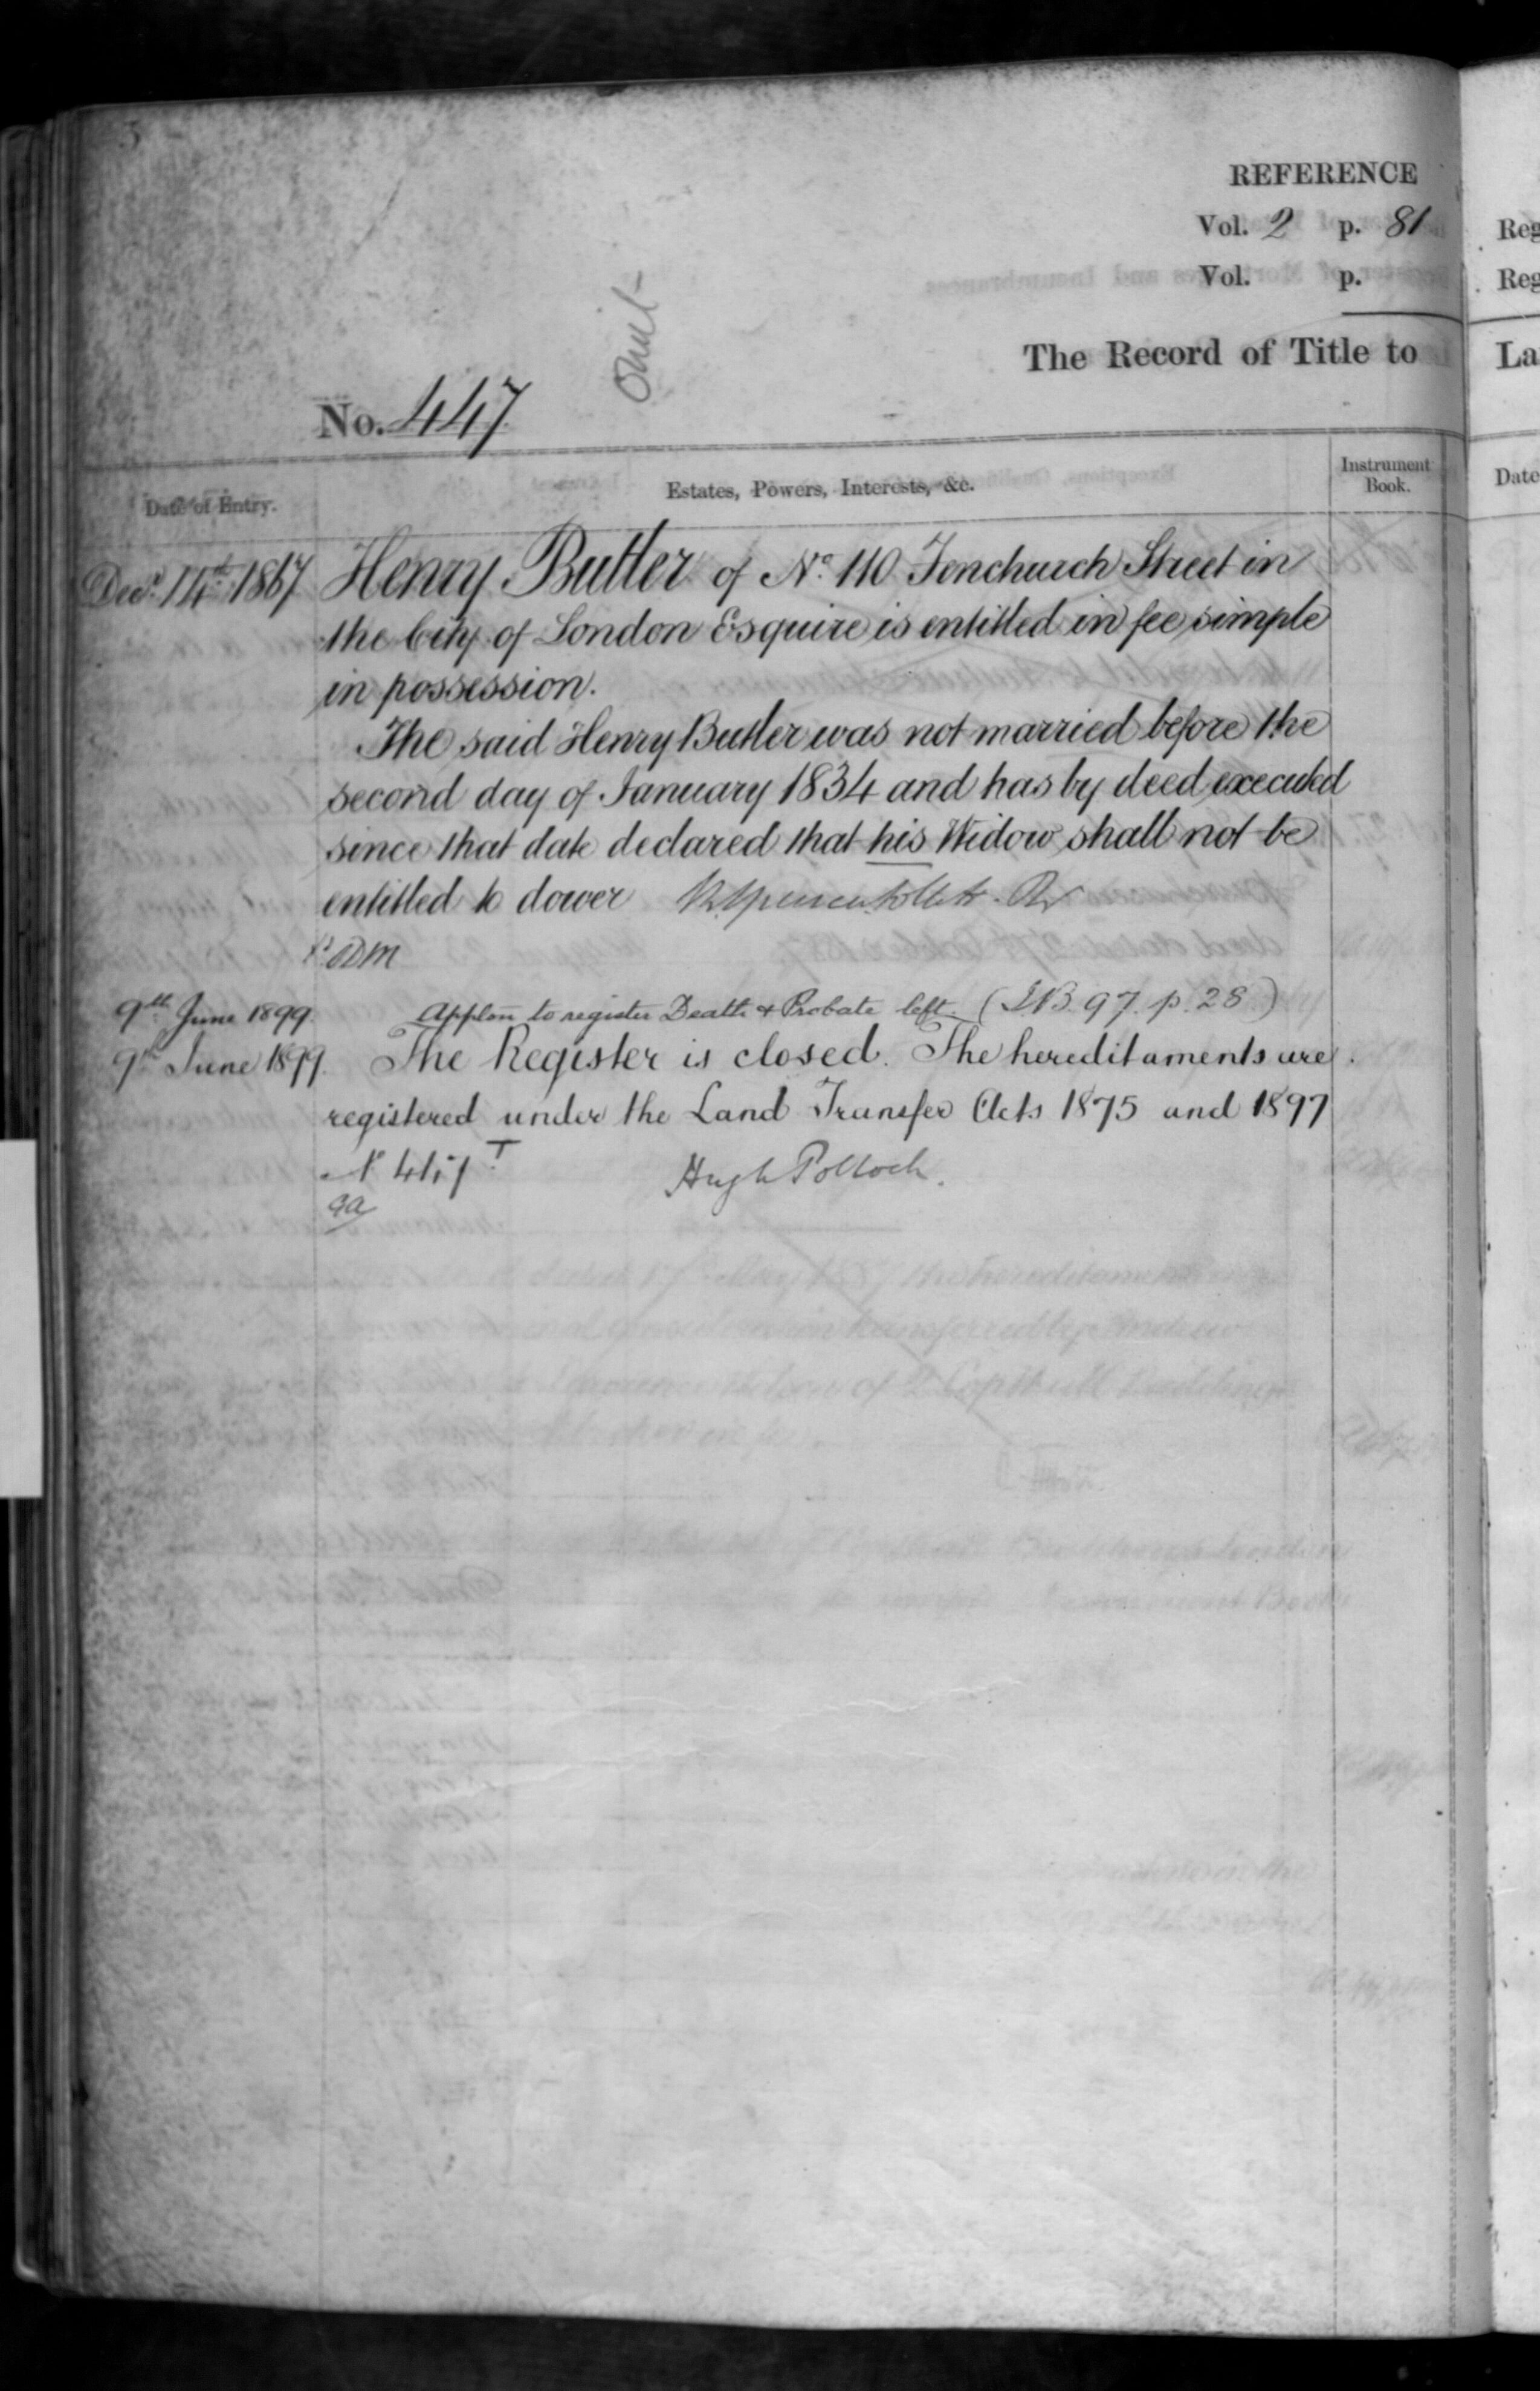 REFERENCE
Vol. 2 p. 81
Vol. p.
Omit
The Record of Title to
No. 447
Date of Entry. Estates, Powers, Interests, &c. Instrument Book.
Decr. 14th 1867 Henry Butler of No. 110 Fenchurch Street in
the City of London Esquire is entitled in fee simple
in possession.
The said Henry Butler was not married before the
second day of January 1834 and has by deed executed
since that date declared that his Widow shall not be
entitled to dower
9th June 1899. Applon to register Death & Probate left. (I.B. 97. p. 28.)
9th June 1899. The Register is closed. The hereditaments are
registered under the Land Transfer Acts 1875 and 1897
Hugh Pollock.
Reg
Reg
La
Date